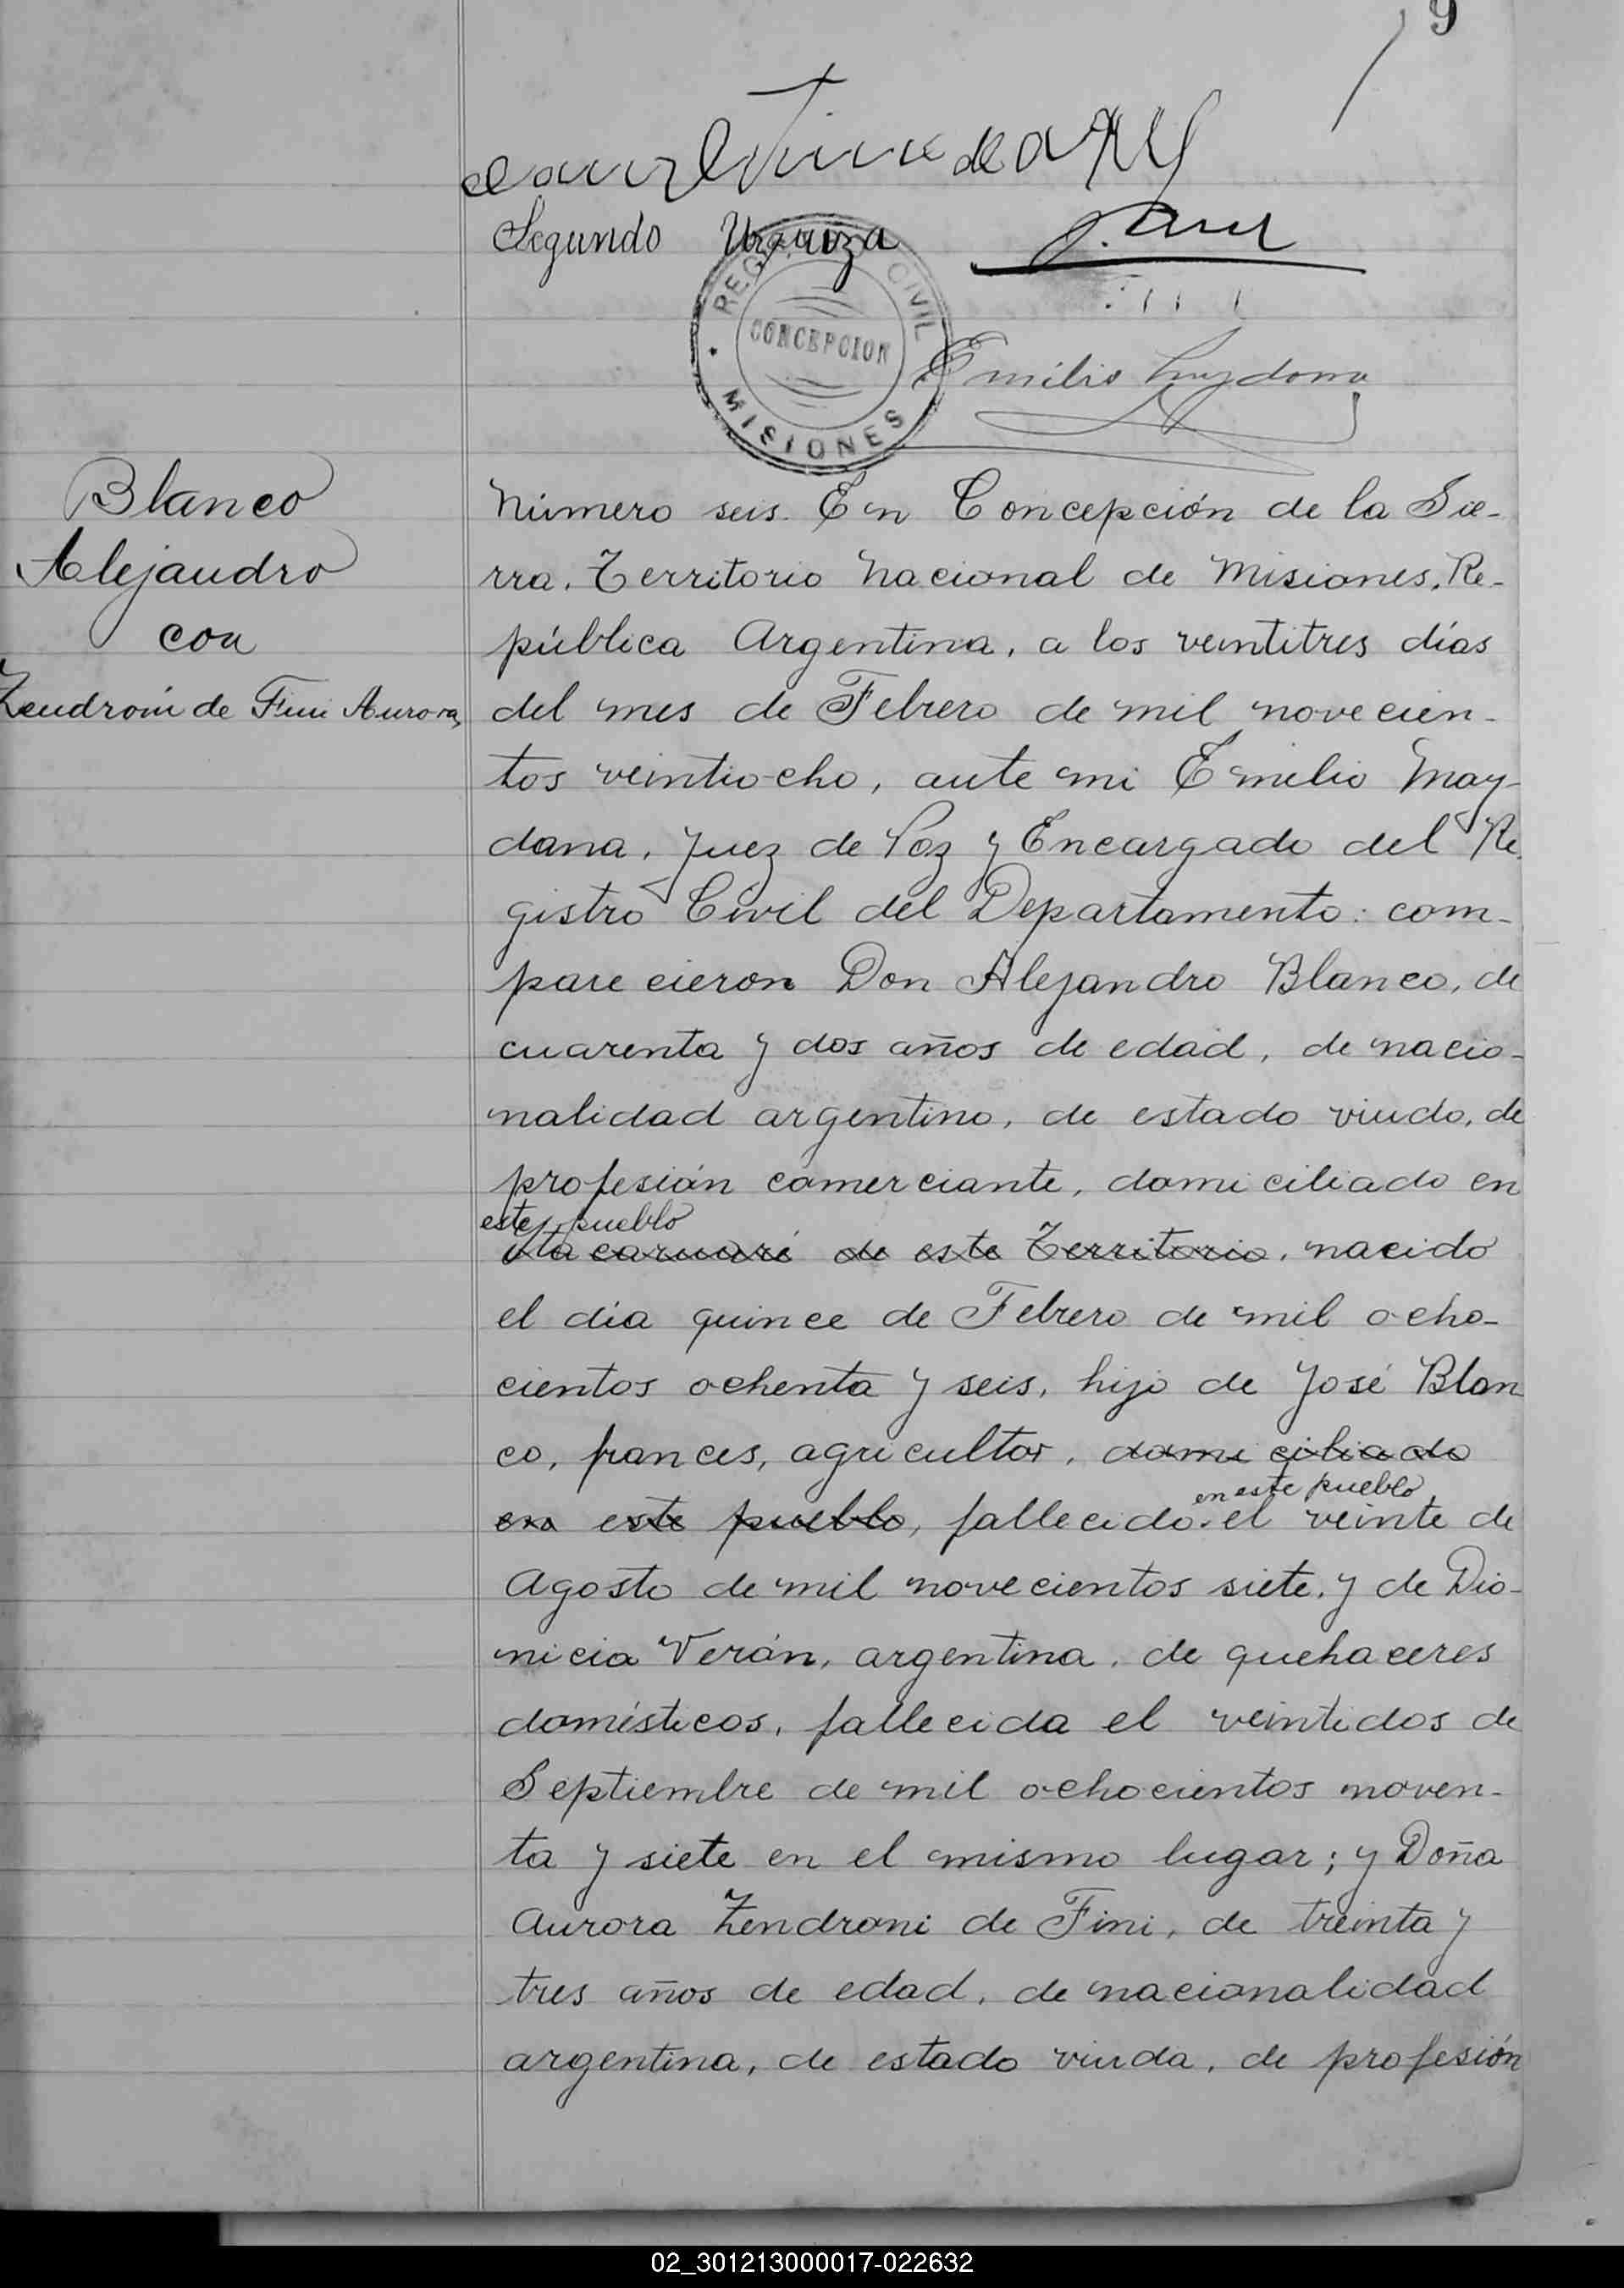 9
Segundo Urquiza
REG CIVIL
CONCEPCION
MISIONES
Emilio Maydana
Blanco
Alejandro
con
Zendroni de Fini Aurora
Número seis. En Concepción de la Sie-
rra, Territorio Nacional de Misiones, Re-
pública Argentina, a los veintitres días
del mes de Febrero de mil novecien-
tos veintiocho, ante mi Emilio May-
dana, Juez de Paz y Encargado del Re-
gistro Civil del Departamento: com-
parecieron Don Alejandro Blanco, de
cuarenta y dos años de edad, de nacio-
nalidad argentino, de estado viudo, de
profesión comerciante, domiciliado en
este pueblo
Itacaruaré de este Territorio, nacido
el día quince de Febrero de mil ocho-
cientos ochenta y seis, hijo de José Blan
co, frances, agricultor, domiciliado
en este pueblo
en este pueblo, fallecido el veinte de
Agosto de mil novecientos siete, y de Dio-
nicia Verán, argentina, de quehaceres
domésticos, fallecida el veintidos de
Septiembre de mil ochocientos noven-
ta y siete en el mismo lugar; y Doña
Aurora Zendroni de Fini, de treinta y
tres años de edad, de nacionalidad
argentina, de estado viuda, de profesión
02_301213000017-022632